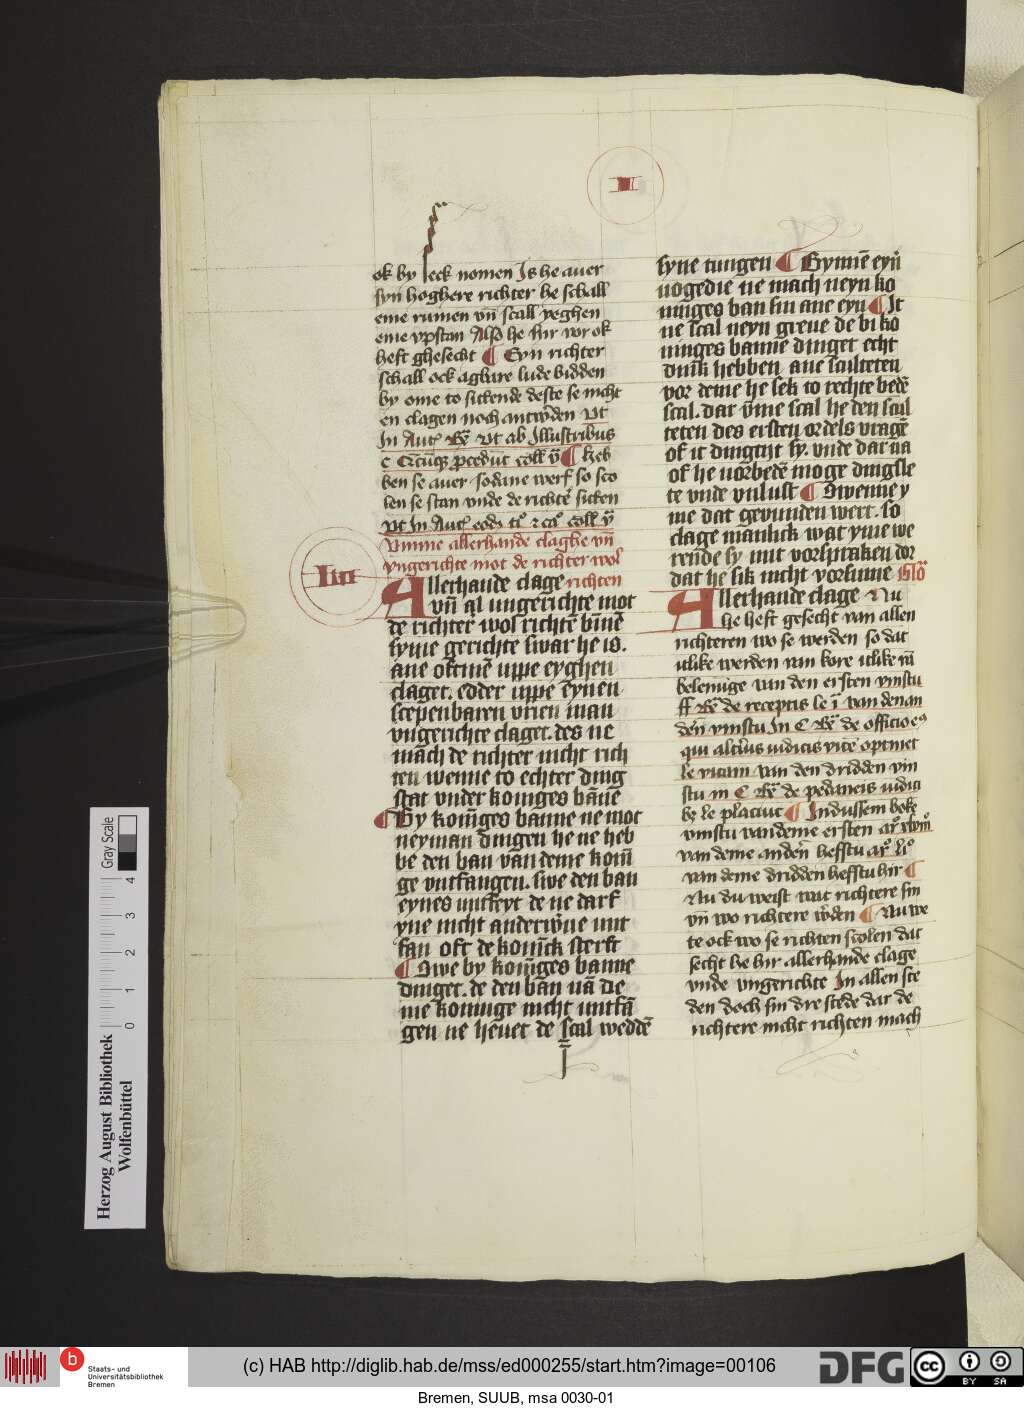 I
ok by leck nomen Is he auer
syn hoghere richter he schall
eme rumen vn̄ scall yeghen
eme vpstan Also he hir vor ok
heft ghesecht ¶ Eyn richter
schall ock agbare lude bidden
by ome to sittende deste se nicht
en clagen noch antw̄den Vt
In Aut̄
Vt ab Illustribus
¶ heb
ben se auer sodane werk so sco
len se stan vnde de richter̄ sitten
Vt In Aut̄
Vmme allerhande claghe vn̄
vngerichte mot de richter wol
richten
IIII
Allerhande clage
vn̄ al ungerichte mot
de richter wol richtē bīnē
syme gerichte swar he is.
ane oftmē uppe eyghen
claget. edder uppe ēynen
scepenbaren vrien man
vngerichte claget. des ne
mach de richter nicht rich
ten wenne to echter ding
stat vnder koninges bāne
¶ By konīges banne ne mot
neyman dingen he ne heb
be den ban van deme konī
ge vntfangen. swe den ban
eynes untfeyt de ne darf
yne nicht anderw̄ue unt
fan oft de konīck sterft
¶ Swe by konīges banne
dinget. de den ban uā de
me koninge nicht untfā
gen ne heuet de scal weddē
syne tungen ¶ Bynnē eyn̄
uogedie ne mach neyn ko
ninges ban sin ane eyn ¶ It
ne scal neyn greue de bi ko
ninges banne dinget echt
dink hebben ane sculteten
vor deme he sek to rechte bedē
scal. dar v̄me scal he den scul
teten des ersten ordels vragē
of it dingtijt sy. vnde dar na
of he uorbedē moge dingsle
te vnde vnlust ¶ Swenne y
me dat gevunden wert. so
clage manlick wat yme we
rende sy mit vorspraken dor
dat he sik nicht vorsume Glō
Allerhande clage Nu
he heft gesecht van allen
richteren wo se werden so dat
itlike werden van kore itlike vā
beleninge van den ersten vinstu
ff de receptis le i van den an
derē vinstu In C de officio e9
qui alterius iudicis vice optinet
le vicam van den dridden vin
stu in C de pedaneis iudici
b9 le placuit ¶ In dussem boke
vinstu van deme ersten
van deme anderē heffstu
van deme dridden heffstu hir ¶
Nu du weist wat richtere sin
vn̄ wo richtere w̄den ¶ Nu we
te ock wo se richten scolen dat
secht he hir allerhande clage
vnde vngerichte In allen ste
den doch sin dre stede dar de
richtere nicht richten mach
Gray Scale
0 1 2 3 4
Herzog August Bibliothek
Wolfenbüttel
b
Staats- und
Universitätsbibliothek
Bremen
(c) HAB http://diglib.hab.de/mss/ed000255/start.htm?image=00106
DFG
cc
BY SA
Bremen, SUUB, msa 0030-01